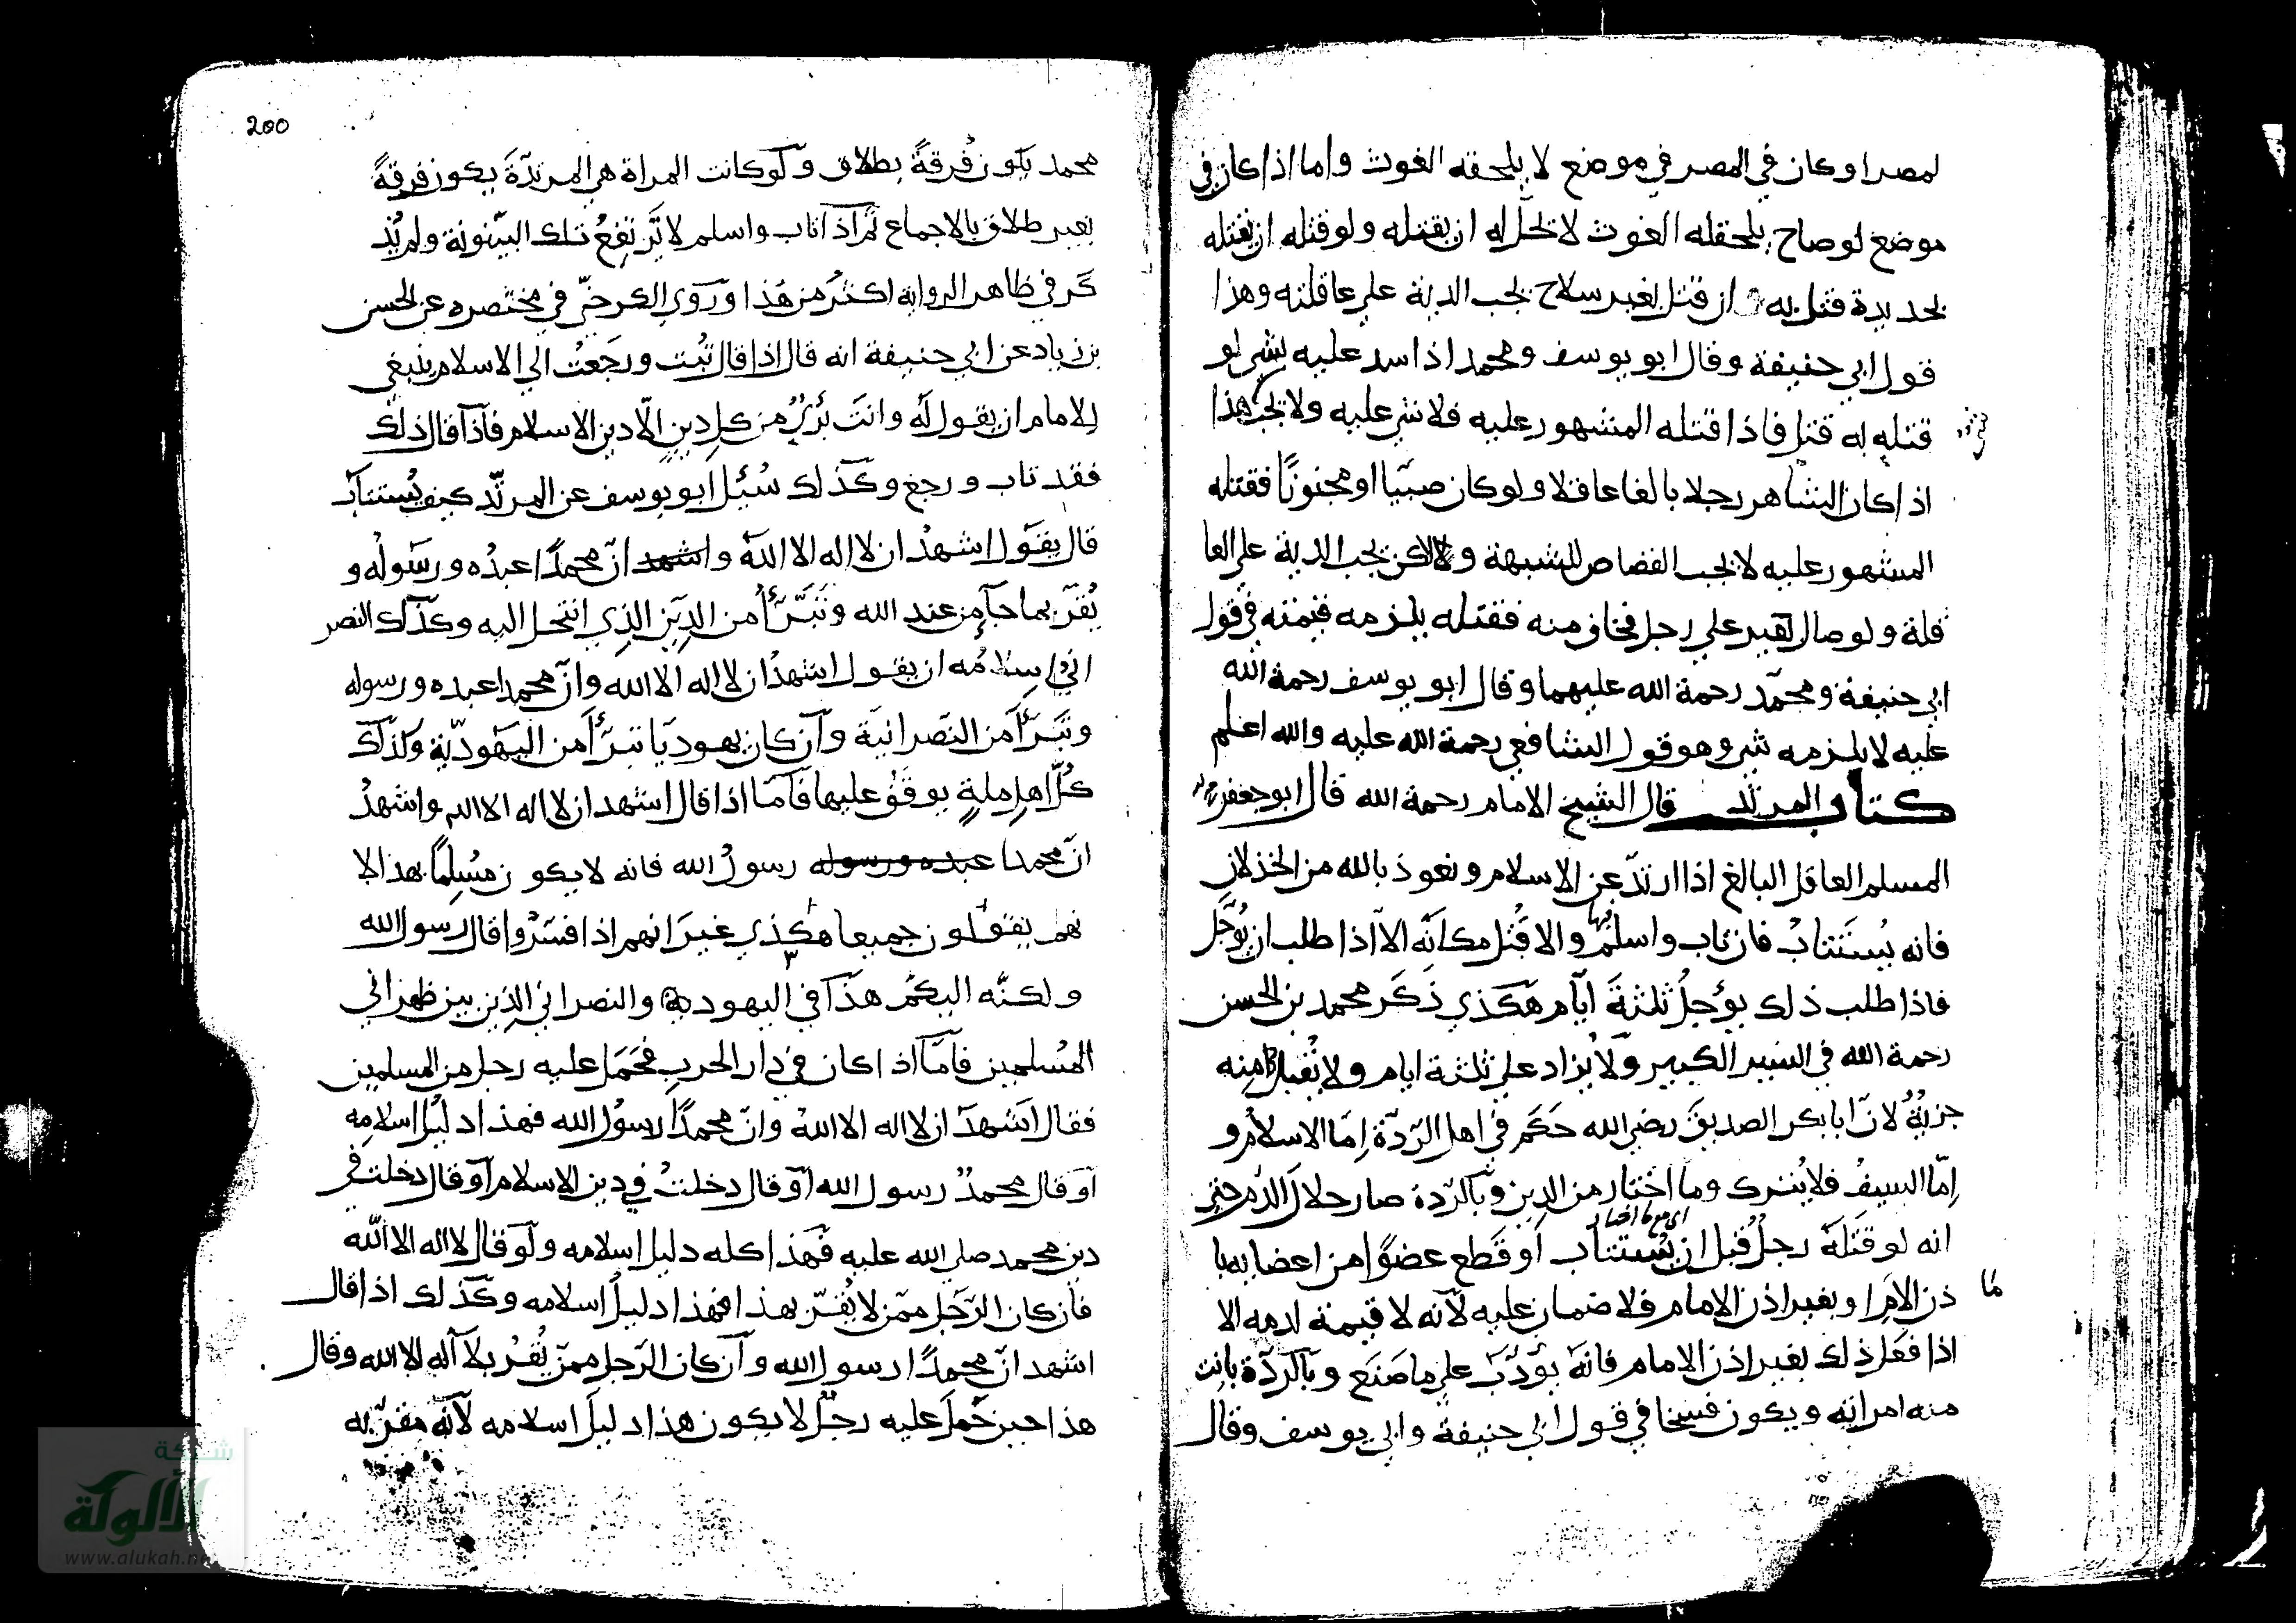 لمصر او كان في المصر في موضع لا يلحقه الغوث واما اذا كان في
موضع لو صاح يلحقه الغوث لا يحل له ان يقتله ولو قتله ان قتله
بحديدة قتل به وان قتل بغير سلاح يجب الدية علي عاقلته وهذا
قول ابي حنيفة وقال ابو يوسف ومحمد اذا اسد عليه بشي لو
قتله به قتل فاذا قتله المشهور عليه فلا شي عليه ولا يجب هذا
اذا كان الشاهر رجلا بالغا عاقلا ولو كان صبيّا او مجنونًا فقتله
المشهور عليه لا يجب القصاص للشبهة ولاكن يجب الدية علي العا
قلة ولو صال بعير علي رجل فخاف منه فقتله يلزمه قيمته في قول
ابي حنيفة ومحمّد رحمة الله عليهما وقال ابو يوسف رحمة الله
عليه لا يلزمه شي وهو قول الشافعي رحمة الله عليه والله اعلم
كتاب المرتد قال الشيخ الامام رحمة الله قال ابو جعفر
المسلم العاقل البالغ اذا ارتدّ عن الاسلام ونعوذ بالله من الخذلان
فانه يُستَتابُ فان تاب واسلم والا قُتل مكانَه الاّ اذا طلب ان يُؤجَّل
فاذا طلب ذلك يؤجلُ ثلثةَ ايّام هَكَذي ذَكَر محمد بن الحسن
رحمة الله في السير الكبير ولا يُزاد علي ثلثة ايام ولا يُقبل منه
جزيةٌ لانّ ابا بكر الصديقَ رضي الله حَكَم في اهل الرّدّة اِمّا الاسلامُ و
اِمّا السيفُ فلا يُترك وما اختار من الدين وبالرّدة صار حلالَ الدّم حتي
اي مع ما اختار
انه لو قَتَلَهُ رجلٌ قبل ان يُستتاب او قَطع عضوًا من اعضايه با
ذن الامام او بغير اذن الامام فلا ضمان عليه لانّه لا قيمة لدمه الا
ما
اذا فعَل ذلك بغير اذن الامام فانهُ يؤدّبُ علي ما صَنَع وبالردّة بانت
منه امراته ويكون فسخا في قول ابي حنيفة وابي يوسف وقال
200
محمد يكون فُرقةً بطلاق ولو كانت المراة هي المرتدّةَ يكون فرقةً
بغير طلاق بالاجماع ثم اذا تاب واسلم لا تَرتفِعُ تلك البيْنونة ولم يُذ
كَر في ظاهر الرواية اكثرُ من هَذا وروي الكرخيّ في مختصره عن الحسن
بن زياد عن ابي حنيفة انه قال اذا قال تُبت ورجَعتُ الي الاسلام ينبغي
للامام ان يقول لَهُ وانتَ برئٌ من كل دينٍ الّا دين الاسلام فاذا قال ذلك
فقد تاب ورجع وكذلك سُئِل ابو يوسف عن المرتّد كيف يُستتاب
قال يقول اشهدُ ان لا اله الا اللهُ واشهد انّ محمدًا عبدُه ورسولُه و
يُقرّ بما جآء من عند الله وتَبَرّأ من الدين الذي انتحل اليه وكذلك النصر
اني اسلامُه ان يقول اشهدُ ان لا اله الا الله وانّ محمدا عبده ورسوله
وتَبَرّأ من النَصرانيّة وان كان يهوديّا تبرّأ من اليهوديّة وكذلك
كُلُّ اهلِ ملةٍ يوقَفُ عليها فامّا اذا قال اشهد ان لا اله الا الله واشهدُ
انّ محمدا عبده ورسوله رسولُ الله فانه لا يكون مُسلِمًا بهذا لا
نهم يقولون جميعا هكذي غيرَ انهم اذا فسّرُوا قال رسول الله
ولكنّه اليكُم هذَا في اليهودية والنصراني الذين بين ظهراني
المُسلمين فامّا اذا كان في دار الحرب فحَمَل عليه رجل من المسلمين
فقال اَشهدُ ان لا اله الا اللهُ وانّ محمدًا رسُولُ الله فهذا دليل اسلامِه
او قال محمدٌ رسول الله او قال دخلتُ في دين الاسلام او قال دخلت في
دين محمد صلي الله عليه فهذا كله دليل اسلامه ولو قال لا اله الا الله
فان كان الرّجل ممّن لا يُقِرّ بهذا فهذا دليلُ اسلامه وكذلك اذا قال
اشهد انّ محمدًا رسول الله وان كان الرّجل ممّن يُقرّ بلا اله الا الله وقال
هذا حين حَملَ عليه رجلٌ لا يكون هذا دليلَ اسلامه لانّه مقرّ به
شبكة
الألوكة
www.alukah.ne